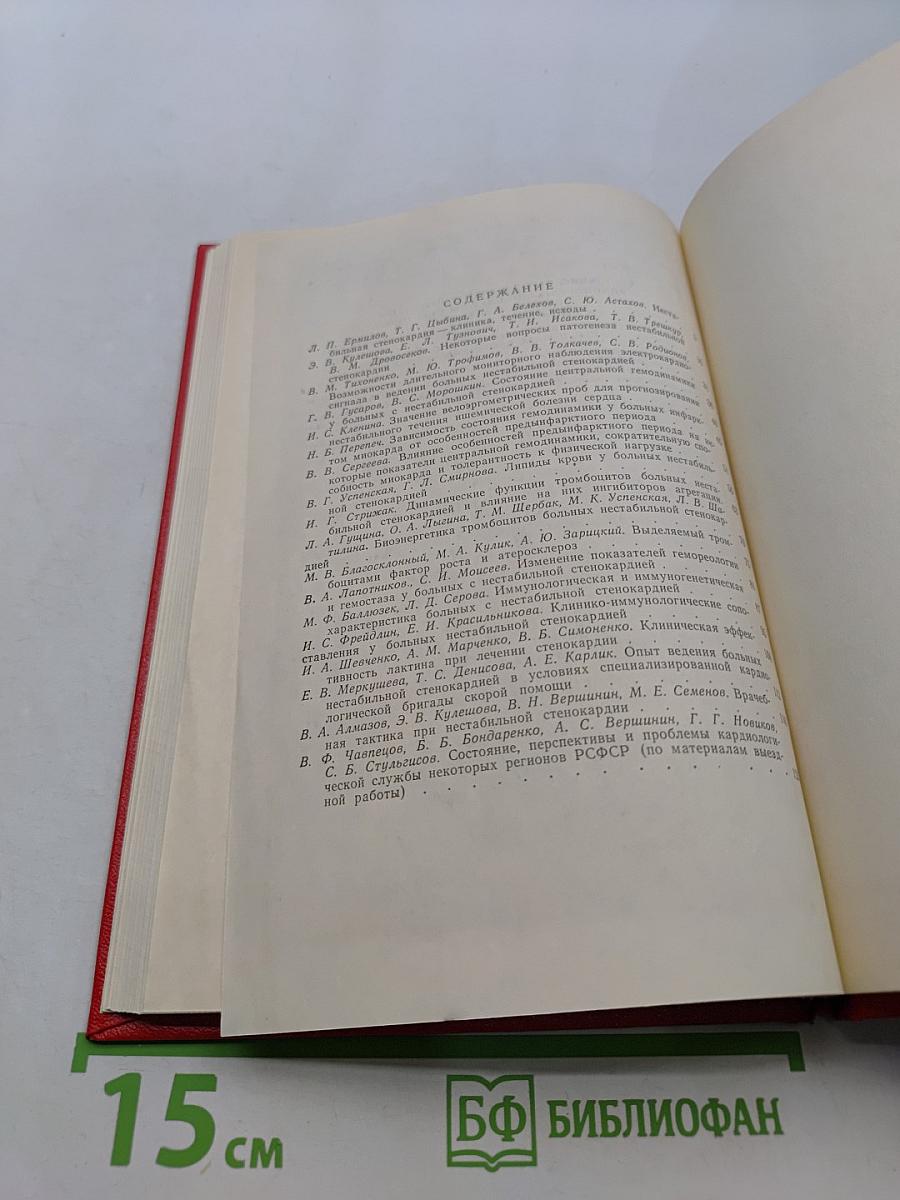 СОДЕРЖАНИЕ
Л. П. Ермилов, Т. Г. Цыбина, Г. А. Белехов, С. Ю. Астахов. Неста-
бильная стенокардия — клиника, течение, исходы .
Э. В. Кулешова, Е. Л. Тузнович, Т. И. Исакова, Т. В. Трешкур,
В. М. Дровосеков. Некоторые вопросы патогенеза нестабильной
стенокардии
В. М. Тихоненко, М. Ю. Трофимов, В. В. Толкачев, С. В. Родионов.
Возможности длительного мониторного наблюдения электрокардио-
сигнала в ведении больных нестабильной стенокардией
Г. В. Гусаров, В. С. Морошкин. Состояние центральной гемодинамики
у больных с нестабильной стенокардией
И. С. Кленина. Значение велоэргометрических проб для прогнозирования
нестабильного течения ишемической болезни сердца
Н. Б. Перепеч. Зависимость состояния гемодинамики у больных инфарк-
том миокарда от особенностей предынфарктного периода
В. В. Сергеева. Влияние особенностей предынфарктного периода на не-
которые показатели центральной гемодинамики, сократительную спо-
собность миокарда и толерантность к физической нагрузке
В. Г. Успенская, Г. Л. Смирнова. Липиды крови у больных нестабиль-
ной стенокардией
И. Г. Стрижак. Динамические функции тромбоцитов больных неста-
бильной стенокардией и влияние на них ингибиторов агрегации.
Л. А. Гущина, О. А. Лыгина, Т. М. Щербак, М. К. Успенская, Л. В. Ша-
тилина. Биоэнергетика тромбоцитов больных нестабильной стенокар-
дией
М. В. Благосклонный, М. А. Кулик, А. Ю. Зарицкий. Выделяемый тром-
боцитами фактор роста и атеросклероз
В. А. Лапотников., С. И. Моисеев. Изменение показателей гемореологии
и гемостаза у больных с нестабильной стенокардией
М. Ф. Баллюзек, Л. Д. Серова. Иммунологическая и иммуногенетическая
характеристика больных с нестабильной стенокардией
И. С. Фрейдлин, Е. И. Красильникова. Клинико-иммунологические сопо-
ставления у больных нестабильной стенокардией
И. А. Шевченко, А. М. Марченко, В. Б. Симоненко. Клиническая эффек-
тивность лактина при лечении стенокардии
Е. В. Меркушева, Т. С. Денисова, А. Е. Карлик. Опыт ведения больных
нестабильной стенокардией в условиях специализированной кардио-
логической бригады скорой помощи
В. А. Алмазов, Э. В. Кулешова, В. Н. Вершинин, М. Е. Семенов. Врачеб-
ная тактика при нестабильной стенокардии
В. Ф. Чавпецов, Б. Б. Бондаренко, А. С. Вершинин, Г. Г. Новиков,
С. Б. Стульгисов. Состояние, перспективы и проблемы кардиологи-
ческой службы некоторых регионов РСФСР (по материалам выезд-
ной работы)
15 см
БФ БИБЛИОФАН